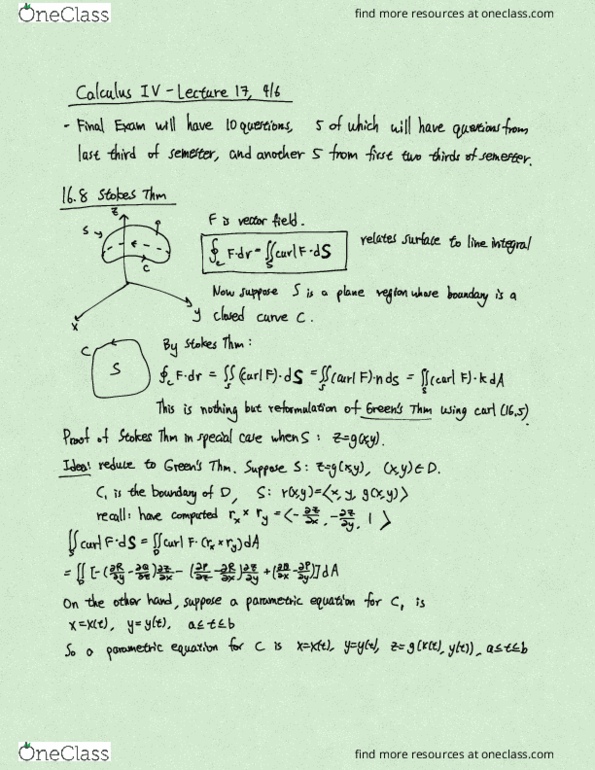 OneClass
find more resources at oneclass.com
Calculus IV - Lecture 17, 4/6
- Final Exam will have 10 questions, 5 of which will have questions from
last third of semester, and another 5 from first two thirds of semester.
16.8 Stokes Thm
z
S
C
x
y
F is vector field.
∮_C F·dr = ∬_S curl F·dS
relates surface to line integral
Now suppose S is a plane region whose boundary is a
closed curve C.
C
S
By Stokes Thm:
∮_C F·dr = ∬_S (curl F)·dS = ∬_S (curl F)·n ds = ∬_S (curl F)·k dA
This is nothing but reformulation of Green's Thm using curl (16.5).
Proof of Stokes Thm in special case when S: z=g(x,y).
Idea: reduce to Green's Thm. Suppose S: z=g(x,y), (x,y)∈D.
C₁ is the boundary of D, S: r(x,y)=⟨x, y, g(x,y)⟩
recall: have computed r_x × r_y = ⟨-∂z/∂x, -∂z/∂y, 1⟩
∬_S curl F·dS = ∬_D curl F·(r_x × r_y)dA
= ∬_D [-(∂R/∂y - ∂Q/∂z)∂z/∂x - (∂P/∂z - ∂R/∂x)∂z/∂y + (∂Q/∂x - ∂P/∂y)]dA
On the other hand, suppose a parametric equation for C₁ is
x=x(t), y=y(t), a≤t≤b
So a parametric equation for C is x=x(t), y=y(t), z=g(x(t), y(t)), a≤t≤b
OneClass
find more resources at oneclass.com